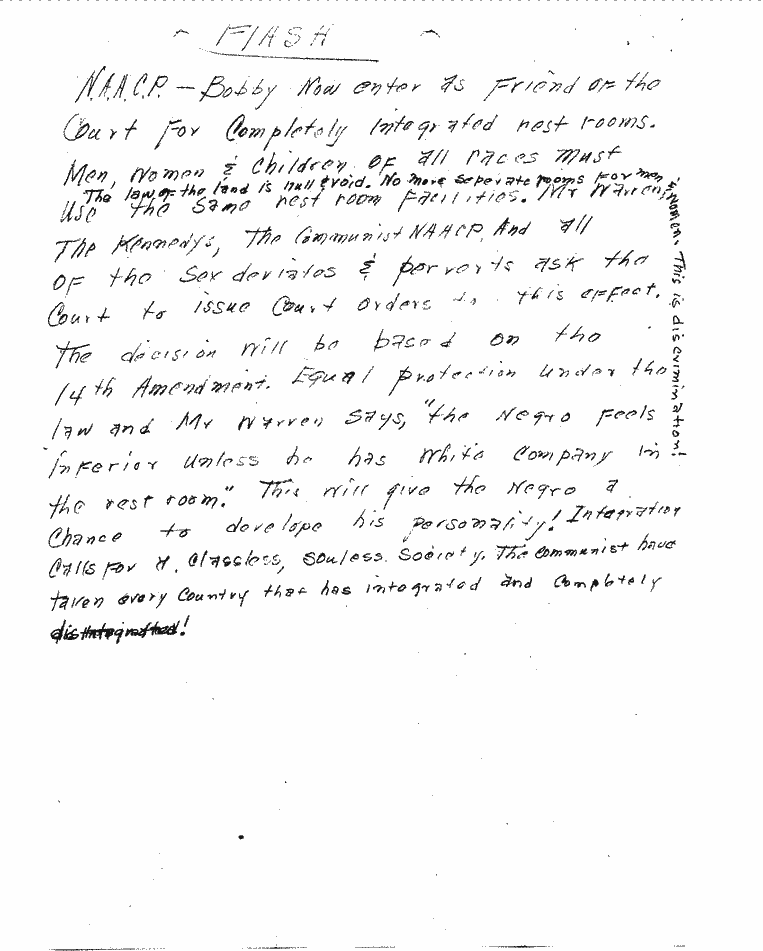 FLASH
N.A.A.C.P. — Bobby Now enter as Friend of the
Court for Completely Integrated rest rooms.
Men, Women & Children of all races must
The law of the land is null & void. No more seperate rooms for men & Women. This is discrimination!
Use the same rest room facilities. Mr Warren,
The Kennedys, The Communist NAACP, And all
of the Sex deviates & perverts ask the
Court to issue Court orders to this effect.
The decision will be based on the
14th Amendment. Equal protection under the
law and Mr Warren says, "the Negro feels
inferior unless he has White Company in
the rest room." This will give the Negro a
Chance to develope his personality! Integration
Calls for A. Classless, Souless Society. The Communist have
taken every Country that has integrated and Completely
disintegrated!